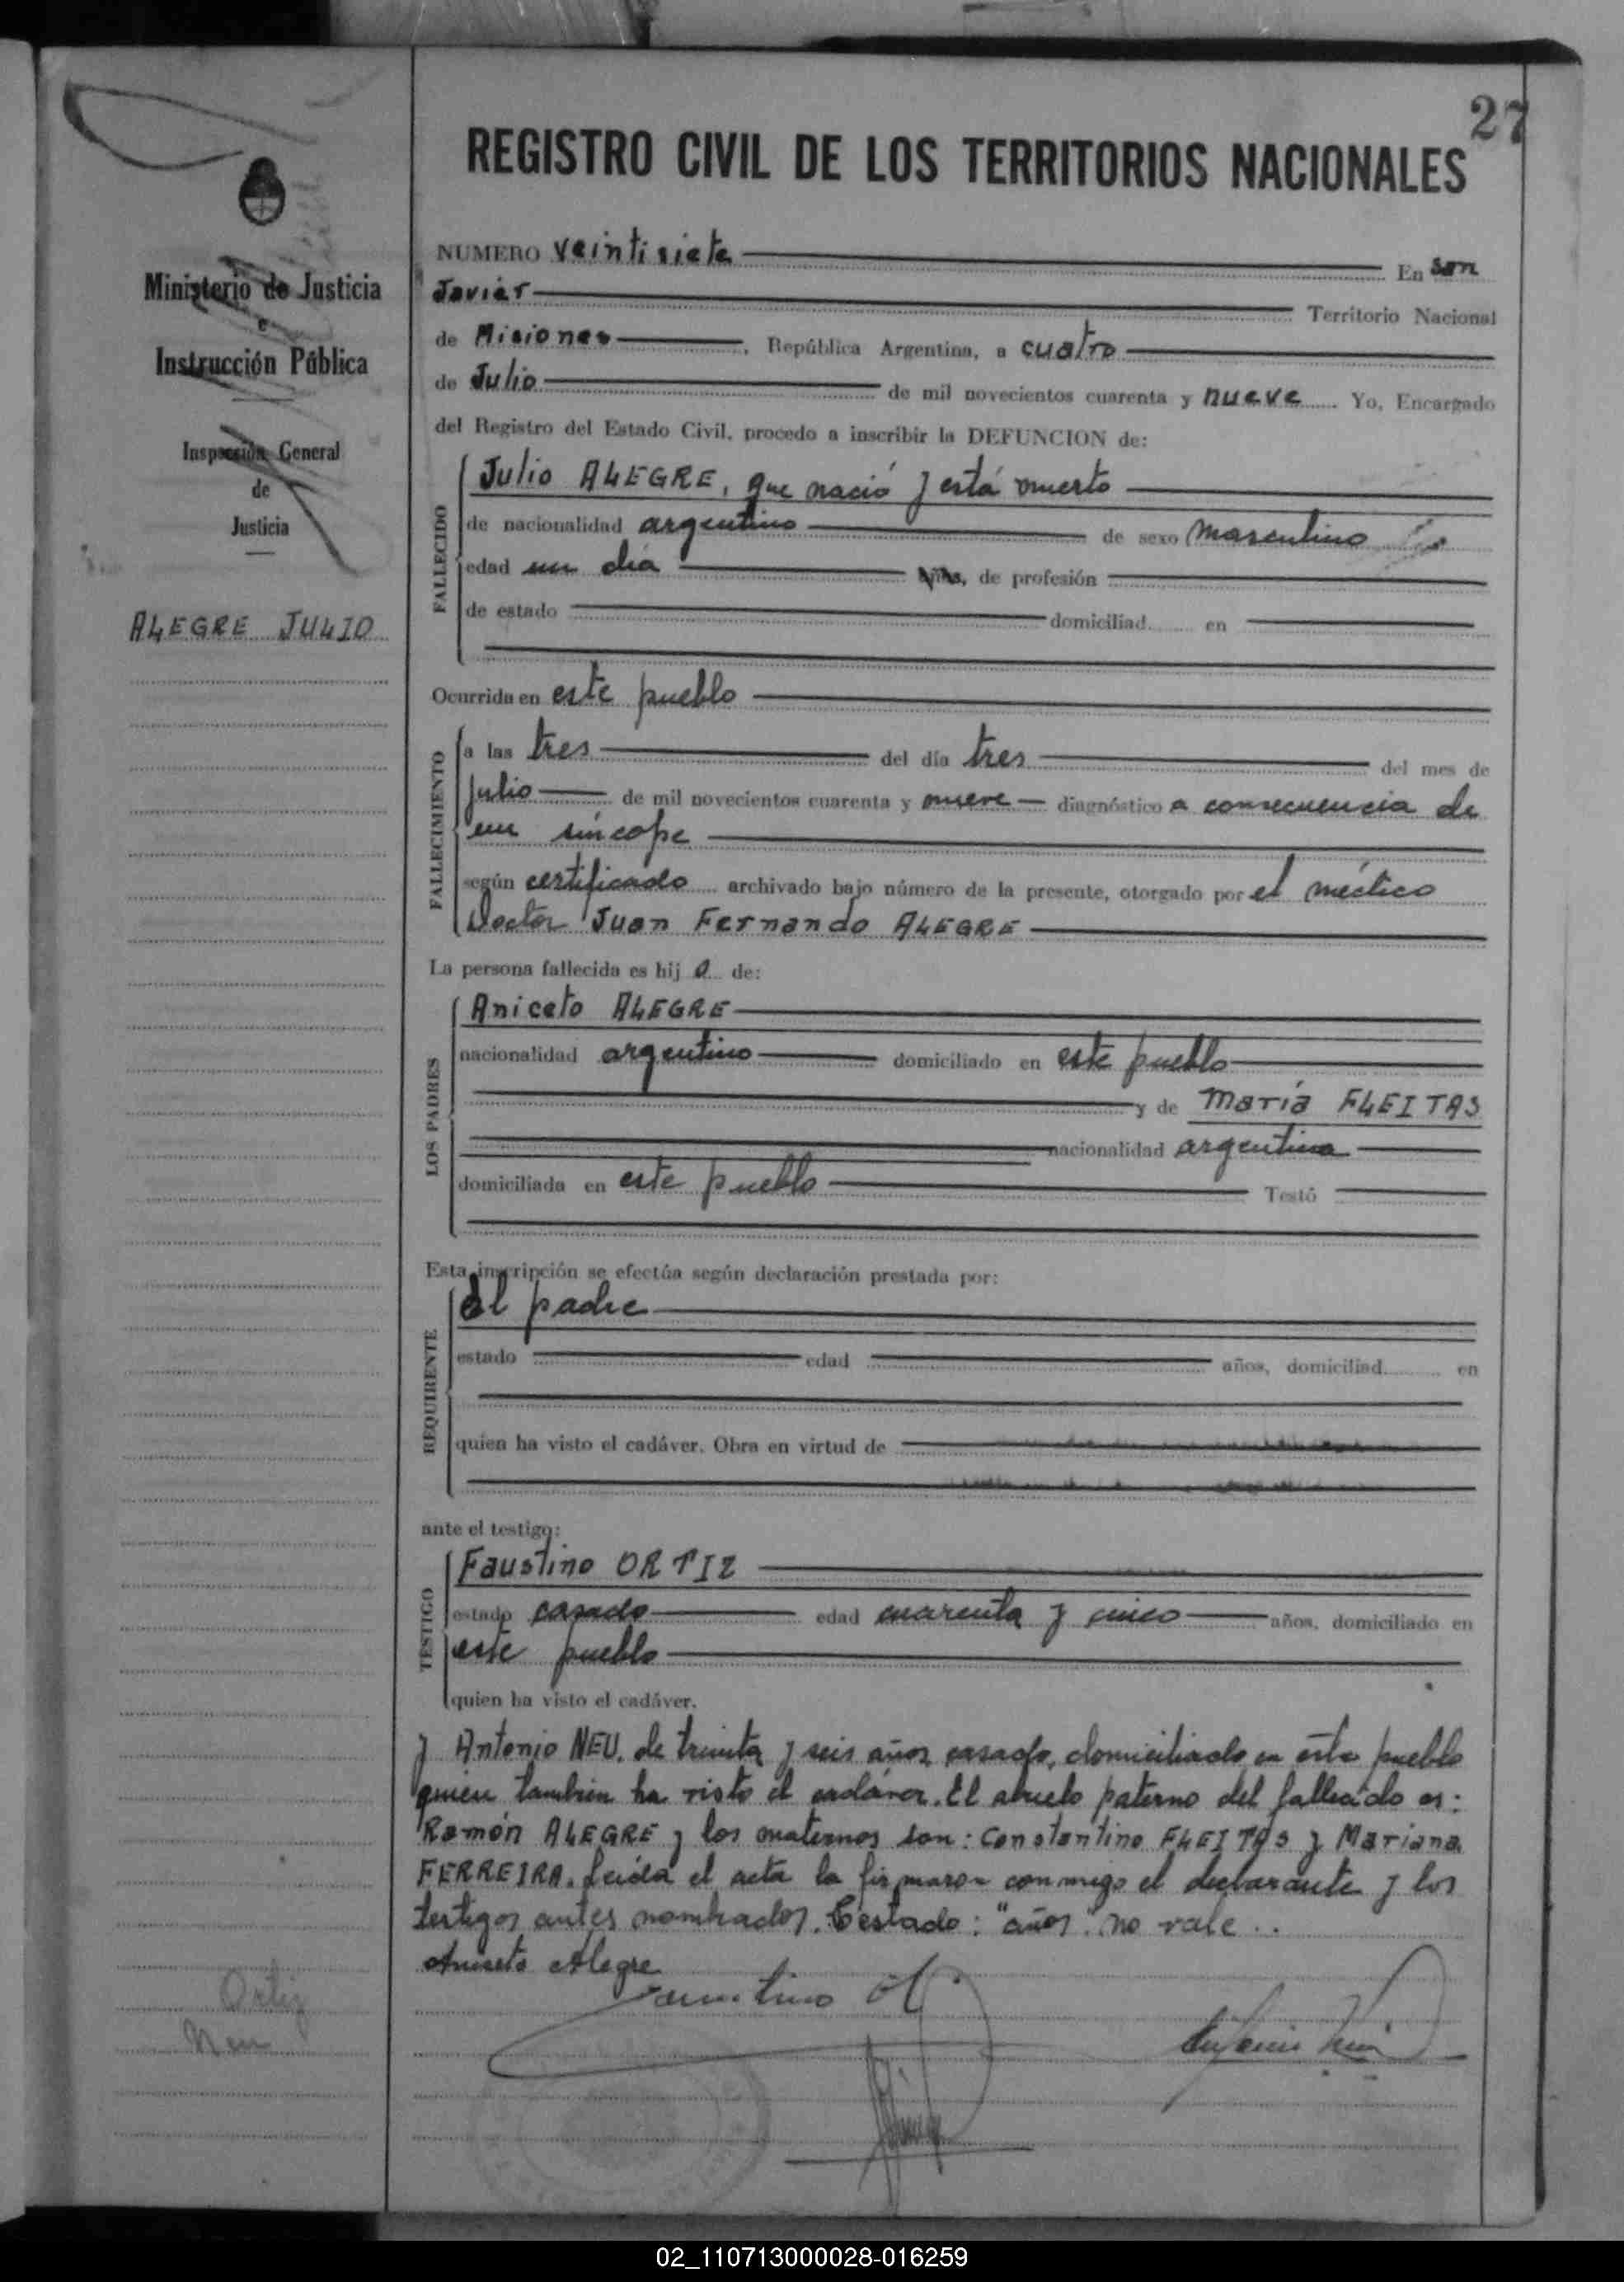 27
REGISTRO CIVIL DE LOS TERRITORIOS NACIONALES
Ministerio de Justicia
e
Instrucción Pública
Inspección General
de
Justicia
ALEGRE JULIO
NUMERO veintisiete En San
Javier Territorio Nacional
de Misiones, República Argentina, a cuatro
de Julio de mil novecientos cuarenta y nueve Yo, Encargado
del Registro del Estado Civil, procedo a inscribir la DEFUNCION de:
FALLECIDO
Julio ALEGRE, que nació y está muerto
de nacionalidad argentino de sexo masculino
edad un día años, de profesión
de estado domiciliad en
Ocurrida en este pueblo
FALLECIMIENTO
a las tres del día tres del mes de
julio de mil novecientos cuarenta y nueve diagnóstico a consecuencia de
un síncope
según certificado archivado bajo número de la presente, otorgado por el médico
Doctor Juan Fernando ALEGRE
La persona fallecida es hij o de:
LOS PADRES
Aniceto ALEGRE
nacionalidad argentino domiciliado en este pueblo
y de María FLEITAS
nacionalidad argentina
domiciliada en este pueblo Testó
Esta inscripción se efectúa según declaración prestada por:
REQUIRENTE
El padre
estado edad años, domiciliad en
quien ha visto el cadáver. Obra en virtud de
ante el testigo:
TESTIGO
Faustino ORTIZ
estado casado edad cuarenta y cinco años, domiciliado en
este pueblo
quien ha visto el cadáver.
y Antonio NEU, de treinta y seis años, casado, domiciliado en este pueblo
quien tambien ha visto el cadáver. El abuelo paterno del fallecido es:
Ramón ALEGRE y los maternos son: Constantino FLEITAS y Mariana
FERREIRA. Leída el acta la firmaron conmigo el declarante y los
testigos antes nombrados. Testado: "años". no vale..
Aniseto Alegre
Ortiz
Neu
02_110713000028-016259